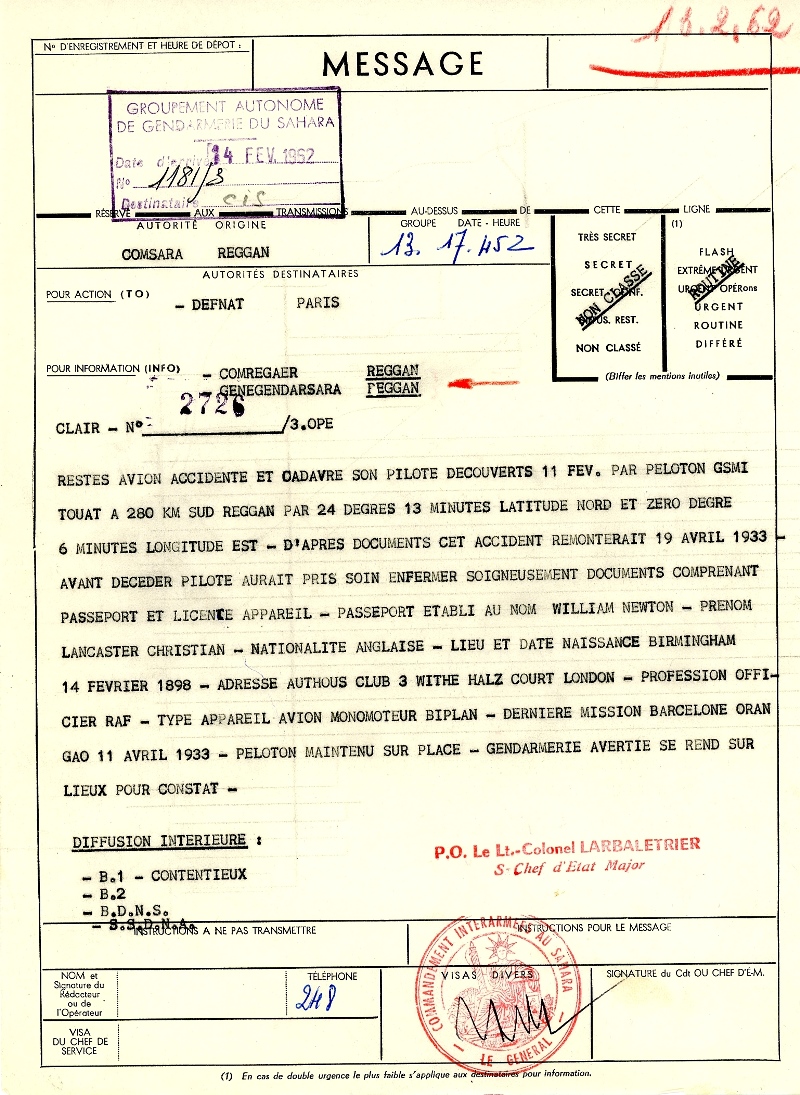 13.2.62
Nº D'ENREGISTREMENT ET HEURE DE DÉPOT :
MESSAGE
GROUPEMENT AUTONOME
DE GENDARMERIE DU SAHARA
Date d'arrivé 14 FEV. 1962
Nº 1181/3
Destinataire CIS
RÉSERVÉ AUX TRANSMISSIONS AU-DESSUS DE CETTE LIGNE
AUTORITÉ ORIGINE
COMSARA REGGAN
GROUPE DATE - HEURE
13. 17.45Z
TRÈS SECRET
SECRET
SECRET CONF.
DIFUS. REST.
NON CLASSÉ
NON CLASSE
(1)
FLASH
EXTRÊME URGENT
URGENT OPÉRons
URGENT
ROUTINE
DIFFÉRÉ
ROUTINE
(Biffer les mentions inutiles)
AUTORITÉS DESTINATAIRES
POUR ACTION (TO) - DEFNAT PARIS
POUR INFORMATION (INFO) - COMREGAER REGGAN
- GENEGENDARSARA REGGAN
CLAIR - Nº 2726 /3.OPE
RESTES AVION ACCIDENTE ET CADAVRE SON PILOTE DECOUVERTS 11 FEV. PAR PELOTON GSMI
TOUAT A 280 KM SUD REGGAN PAR 24 DEGRES 13 MINUTES LATITUDE NORD ET ZERO DEGRE
6 MINUTES LONGITUDE EST - D'APRES DOCUMENTS CET ACCIDENT REMONTERAIT 19 AVRIL 1933 -
AVANT DECEDER PILOTE AURAIT PRIS SOIN ENFERMER SOIGNEUSEMENT DOCUMENTS COMPRENANT
PASSEPORT ET LICENCE APPAREIL - PASSEPORT ETABLI AU NOM WILLIAM NEWTON - PRENOM
LANCASTER CHRISTIAN - NATIONALITE ANGLAISE - LIEU ET DATE NAISSANCE BIRMINGHAM
14 FEVRIER 1898 - ADRESSE AUTHOUS CLUB 3 WITHE HALZ COURT LONDON - PROFESSION OFFI-
CIER RAF - TYPE APPAREIL AVION MONOMOTEUR BIPLAN - DERNIERE MISSION BARCELONE ORAN
GAO 11 AVRIL 1933 - PELOTON MAINTENU SUR PLACE - GENDARMERIE AVERTIE SE REND SUR
LIEUX POUR CONSTAT -
DIFFUSION INTERIEURE :
- B.1 - CONTENTIEUX
- B.2
- B.D.N.S.
- S.S.D.N.A.
P.O. Le Lt.-Colonel LARBALETRIER
S-Chef d'Etat Major
INSTRUCTIONS A NE PAS TRANSMETTRE
INSTRUCTIONS POUR LE MESSAGE
NOM et
Signature du
Rédacteur
ou de
l'Opérateur
TÉLÉPHONE
248
VISAS DIVERS
SIGNATURE du Cdt OU CHEF D'É.-M.
COMMANDEMENT INTERARMÉES AU SAHARA
LE GENERAL
VISA
DU CHEF DE
SERVICE
(1) En cas de double urgence le plus faible s'applique aux destinataires pour information.